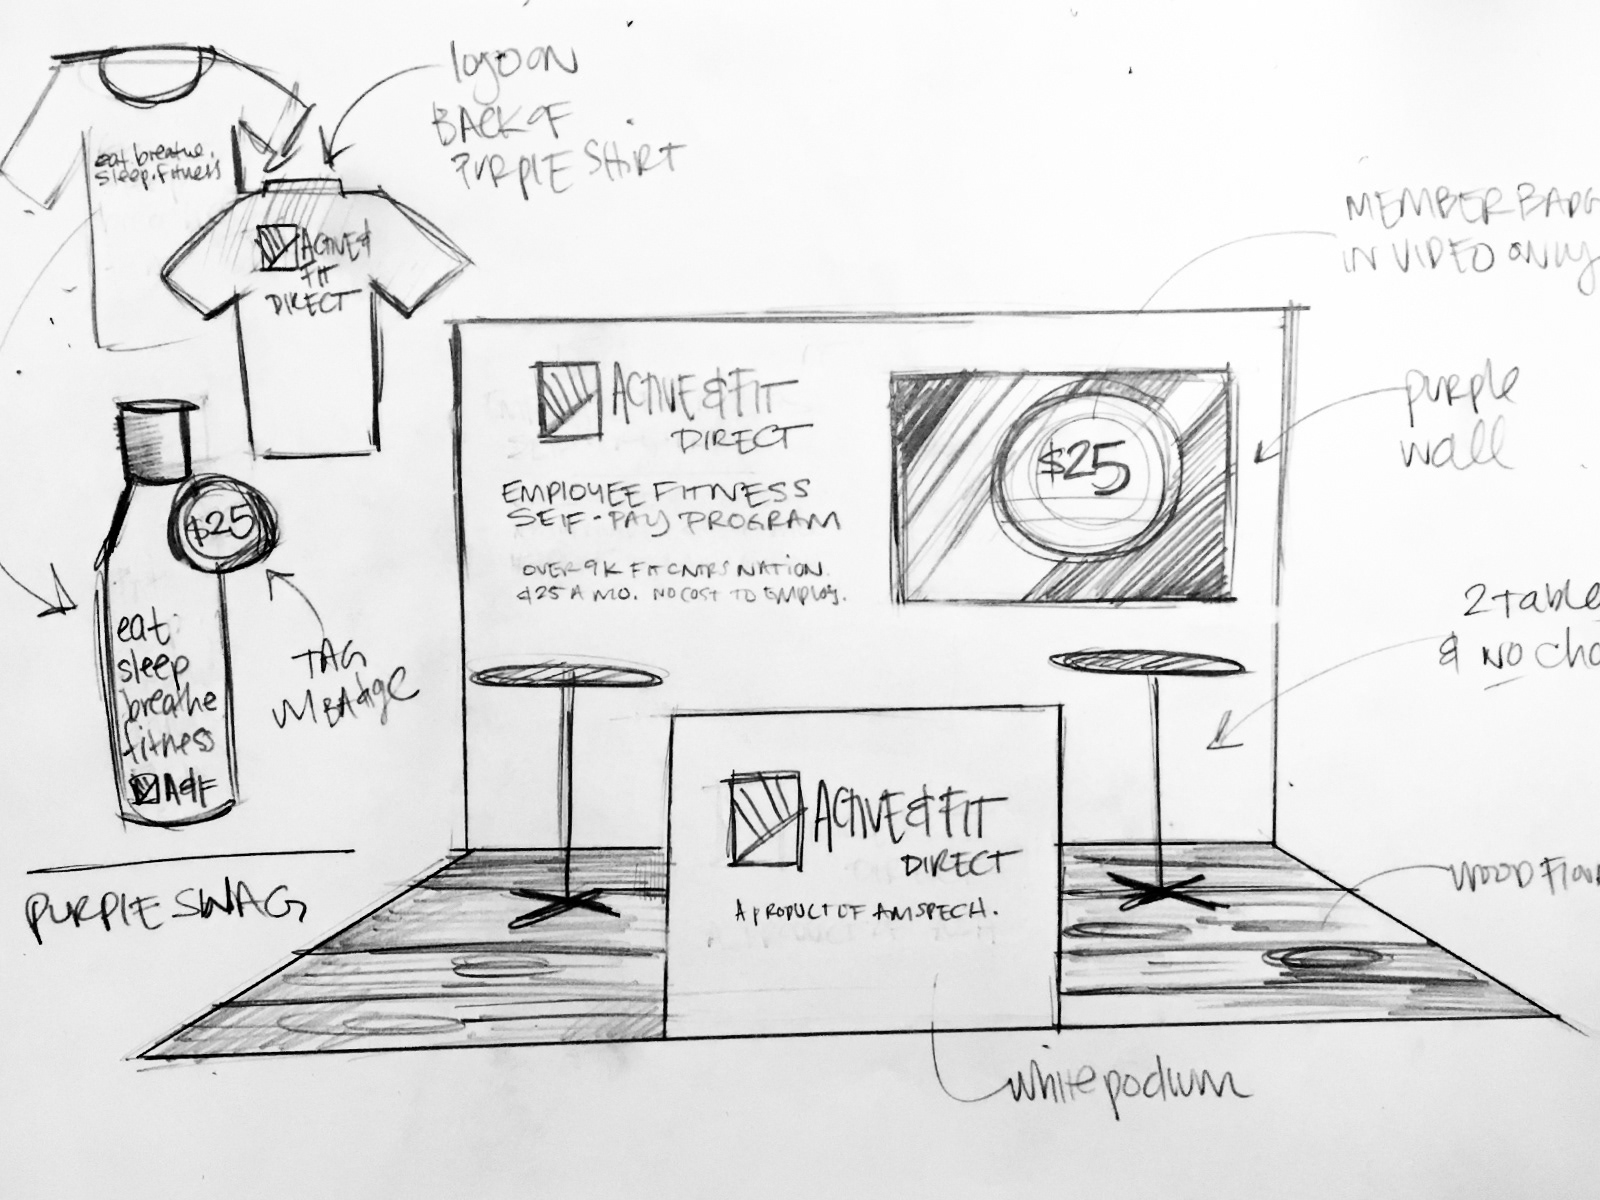 logo on
BACK OF
PURPLE SHIRT
eat. breathe.
sleep. fitness
ACTIVE &
FIT
DIRECT
$25
eat
sleep
breathe
fitness
A&F
TAG
W/ BADGE
PURPLE SWAG
ACTIVE & FIT
DIRECT
EMPLOYEE FITNESS
SELF-PAY PROGRAM
OVER 9K FIT CNTRS NATION.
$25 A MO. NO COST TO EMPLOY.
$25
MEMBER BADG
IN VIDEO ONLY
purple
wall
2 Table
& NO cha
WOOD FLOO
ACTIVE & FIT
DIRECT
A PRODUCT OF AM SPECH.
white podium